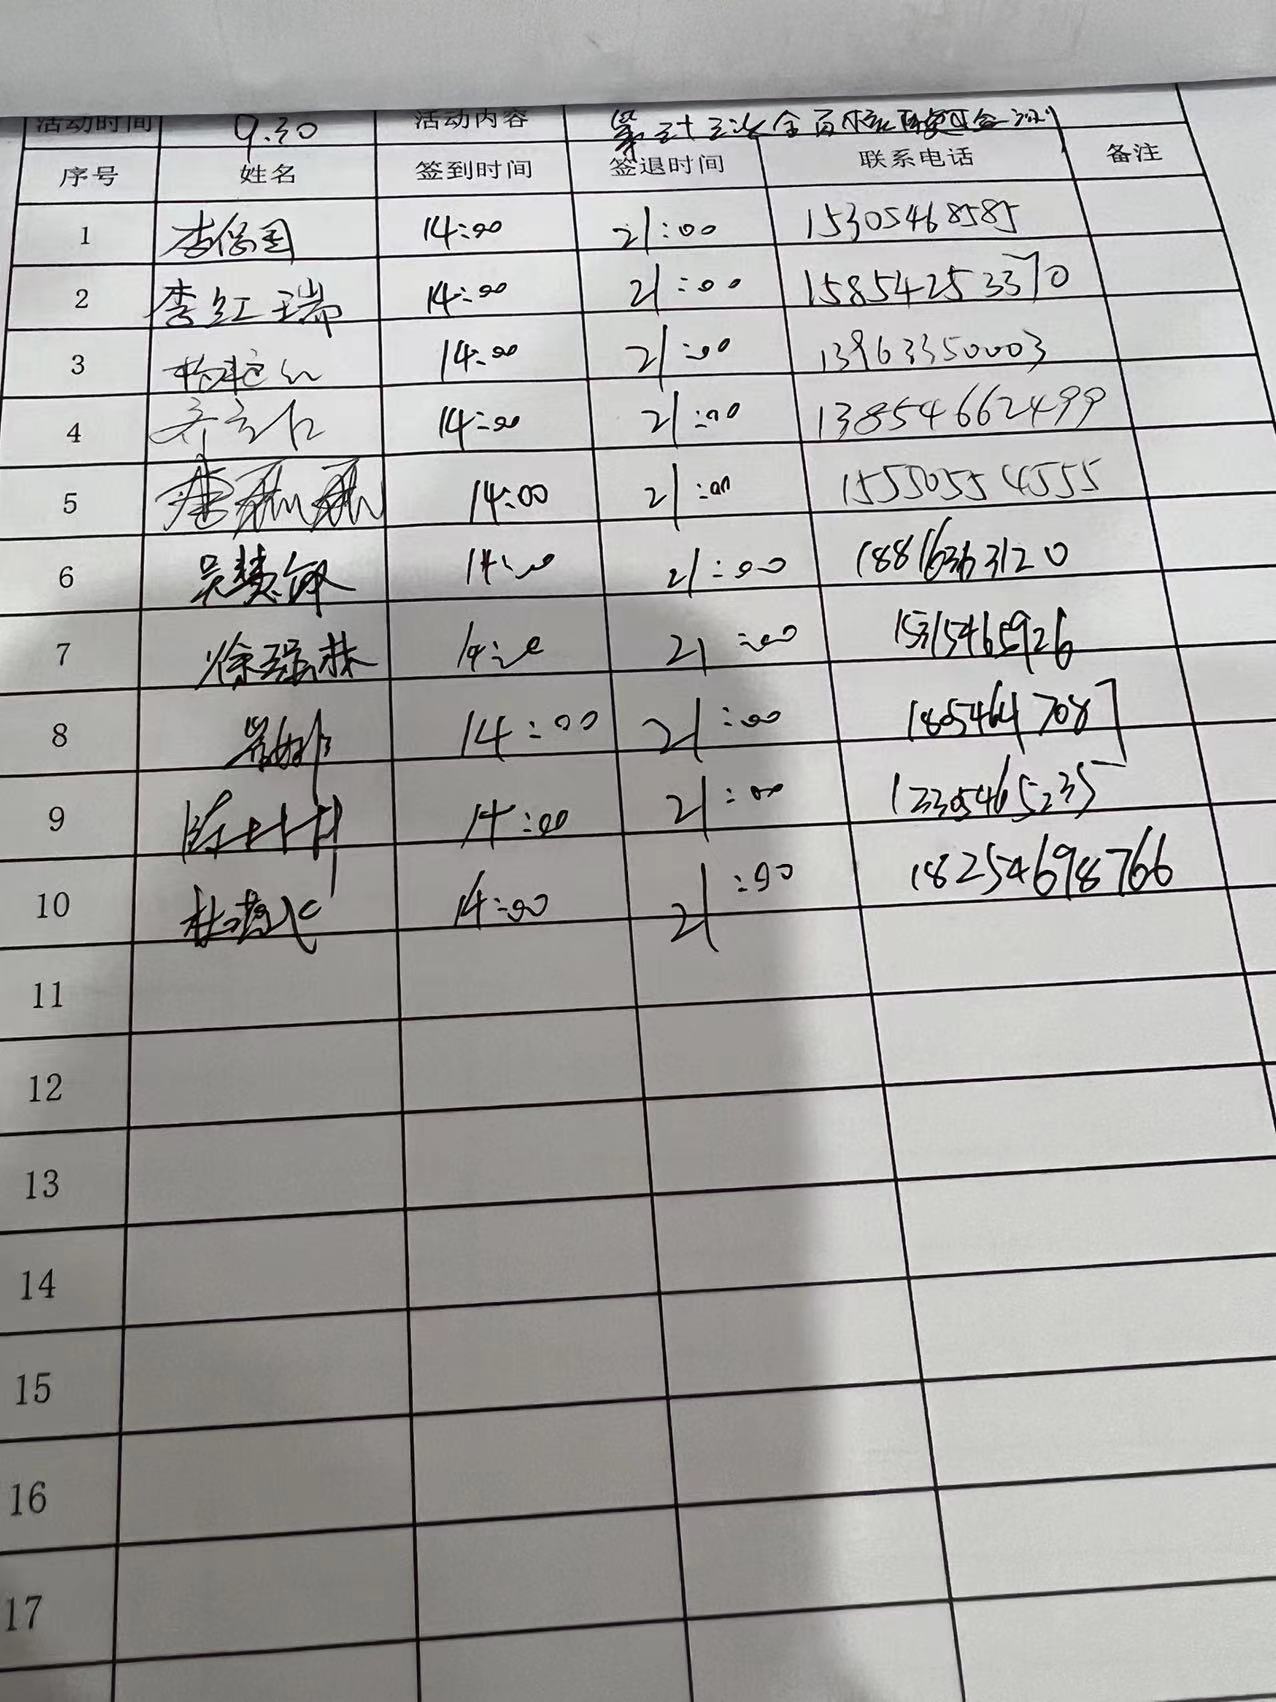 活动时间 9.30 活动内容 全员核酸
序号 姓名 签到时间 签退时间 联系电话 备注
1 李保国 14:00 21:00 15305468585
2 李红瑞 14:00 21:00 15854253370
3 14:00 21:00 13963350003
4 14:00 21:00 13854662499
5 14:00 21:00 15550554555
6 吴慧敏 14:00 21:00 18816363120
7 徐强林 14:00 21:00 15315465926
8 14:00 21:00 18054647087
9 14:00 21:00 13305465235
10 14:00 21:00 18254698766
11
12
13
14
15
16
17